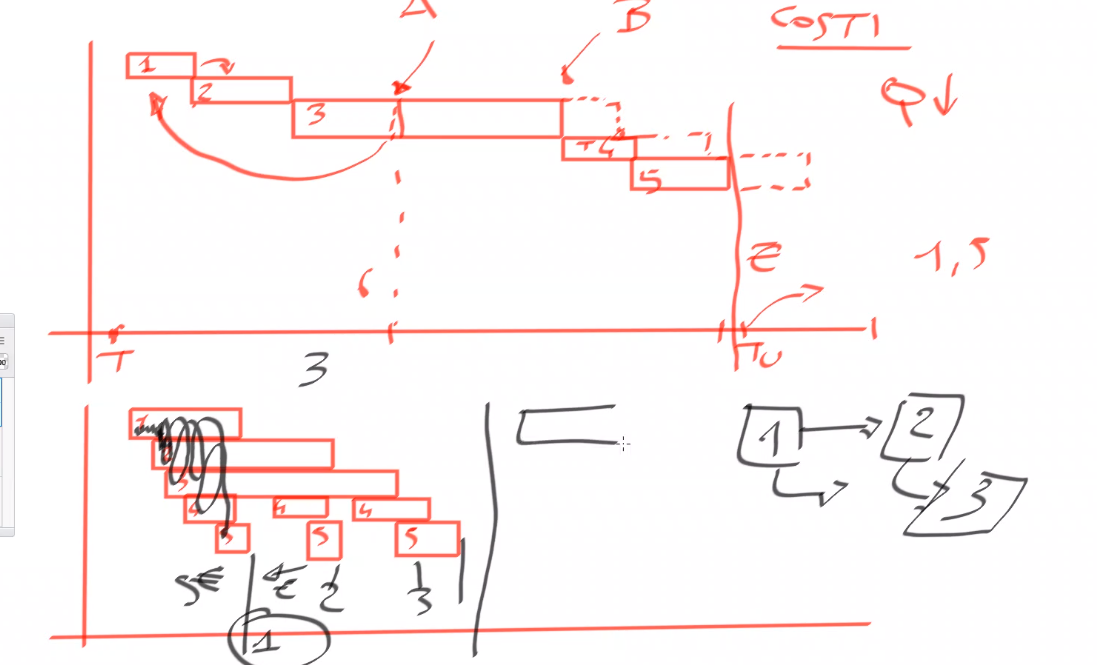 A
B
COSTI
1
2
3
4
5
Q↓
6
€
1,5
T
TTU
3
1
2
3
4
4
4
5
5
5
5€
€
1/2
1/3
1
1
2
3